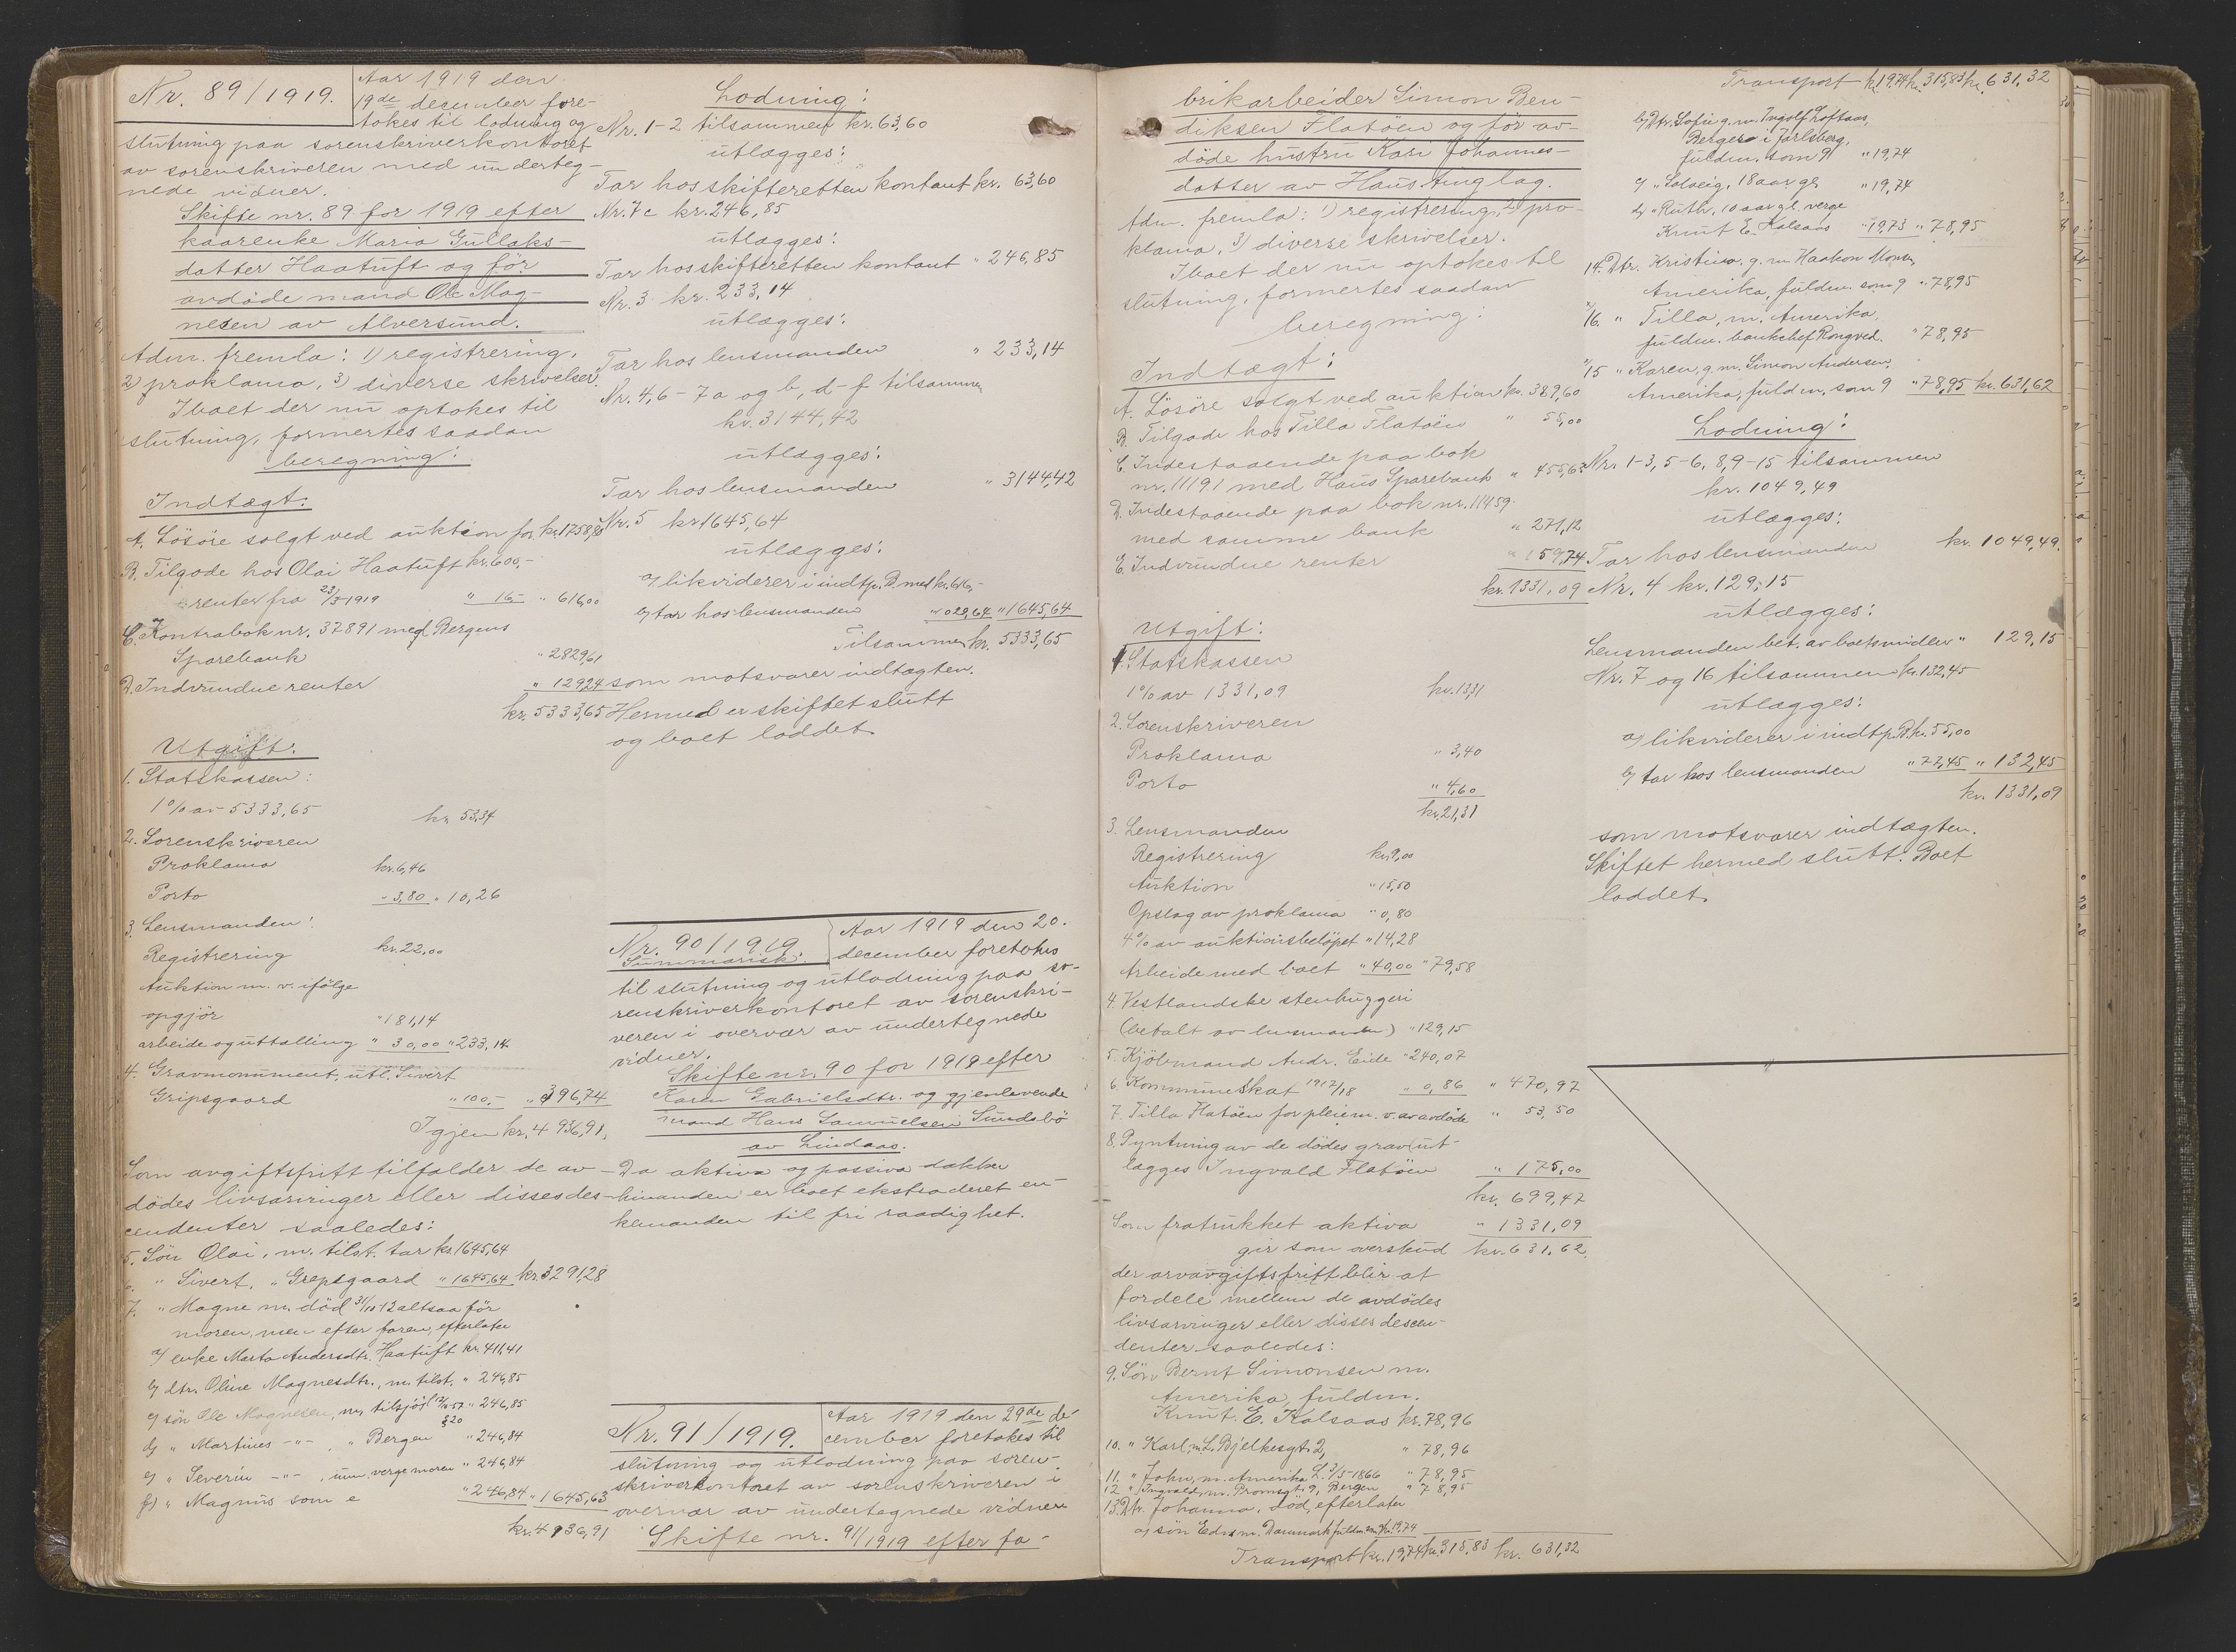 Nr. 89/1919.
Aar 1919 den
19de december fore-
tokes til lodning og
slutning paa sorenskriverkontoret
av sorenskriveren med underteg-
nede vidner.
Skifte nr. 89 for 1919 efter
kaarenke Maria Gullaks-
datter Haatuft og før
avdøde mand Ole Mag-
nesen av Alversund.
Adm. fremla: 1) registrering,
2) proklama, 3) diverse skrivelser.
I boet der nu optokes til
slutning, formertes saadan
beregning:
Indtægt:
A. Løsøre solgt ved auktion for kr. 1758,80
B. Tilgode hos Olai Haatuft kr. 600,-
renter fra 23/5 1919 " 16,- " 616,00
C. Kontrabok nr. 37891 med Bergens
Sparebank " 2829,61
D. Indvundne renter " 129,24
kr. 5333,65
Utgift:
1. Statskassen:
1% av 5333,65 kr. 53,34
2. Sorenskriveren
Proklama kr. 6,46
Porto " 3,80 " 10,26
3. Lensmanden:
Registrering kr. 22,00
Auktion m. v. ifølge
opgjør " 181,14
arbeide og uttælling " 30,00 " 233,14
4. Gravmonument, utl. Sivert
Gripsgaard " 100,- " 396,74
Igjen kr. 4936,91
Som avgiftsfritt tilfalder de av-
dødes livsarvinger eller disses des-
cendenter saaledes:
5. Søn Olai, m. tilst. tar kr. 1645,64
" Sivert, " Grepsgaard " 1645,64 kr. 3291,28
7. " Magne m. død 31/10-12 altsaa før
moren, men efter faren, efterlater
a) enke Marta Andersdtr. Haatuft kr. 411,41
b) dtr. Oline Magnesdtr., m. tilst. " 246,85
c) søn Ole Magnesen, m, tilsjøs § 20 " 246,85
d) " Martines -"- , " Bergen " 246,84
e) " Severin -"- , um. verge moren " 246,84
f) " Magnus som e " 246,84 " 1645,63
kr. 4936,91
Lodning:
Nr. 1-2 tilsammen kr. 63,60
utlægges:
Tar hos skifteretten kontant kr. 63,60
Nr. 7c kr. 246,85
utlægges:
Tar hos skifteretten kontant " 246,85
Nr. 3 kr. 233,14
utlægges:
Tar hos lensmanden " 233,14
Nr. 4, 6 - 7a og b, d-f tilsammen
kr. 3144,42
utlægges:
Tar hos lensmanden " 3144,42
Nr. 5 kr. 1645,64
utlægges:
a) likviderer i indtp. B. med kr. 616,-
b) tar hos lensmanden " 1029,64 " 1645,64
Tilsammen kr. 5333,65
som motsvarer indtægten.
Hermed er skiftet slutt
og boet loddet.
Nr. 90/1919.
Summarisk.
Aar 1919 den 20.
december foretokes
til slutning og utlodning paa so-
renskriverkontoret av sorenskri-
veren i overvær av undertegnede
vidner.
Skifte nr. 90 for 1919 efter
Karen Gabrielsdtr. og gjenlevende
mand Hans Samuelsen Sundsbø
av Lindaas.
Da aktiva og passiva dækker
hinanden er boet ekstraderet en-
kemanden til fri raadighet.
Nr. 91/1919.
Aar 1919 den 29de de-
cember foretokes til
slutning og utlodning paa soren-
skriverkontoret av sorenskriveren i
overvær av undertegnede vidner
Skifte nr. 91/1919 efter fa-
brikarbeider Simon Ben-
diksen Flatøen og før av-
døde hustru Kari Johannes-
datter av Haus tinglag.
Adm. fremla: 1) registrering, 2) pro-
klama, 3) diverse skrivelser.
I boet der nu optokes til
slutning, formertes saadan
beregning:
Indtægt:
A. Løsøre solgt ved auktion kr. 389,60
B. Tilgode hos Tilla Flatøen " 55,00
C. Indestaaende paa bok
nr. 11191 med Haus Sparebank " 455,63
D. Indestaaende paa bok nr. 11459
med samme bank " 271,12
E. Indvundne renter " 159,74
kr. 1331,09
Utgift:
1. Statskassen
1% av 1331,09 kr. 13,31
2. Sorenskriveren
Proklama " 3,40
Porto " 4,60
kr. 21,31
3. Lensmanden
Registrering kr. 9,00
Auktion " 15,50
Opslag av proklama " 0,80
4% av auktionsbeløpet " 14,28
Arbeide med boet " 40,00 " 79,58
4. Vestlandske stenhuggeri
(betalt av lensmanden) " 129,15
5. Kjøbmand Andr. Eide " 240,07
6. Kommuneskat 1917/18 " 0,86 " 470,97
7. Tilla Flatøen for pleie m. v. av avdøde " 53,50
8. Pyntning av de dødes grav (ut-
lægges Ingvald Flatøen " 175,00
kr. 699,47
Som fratrukket aktiva " 1331,09
gir som overskud kr. 631,62
der arvavgiftsfritt blir at
fordele mellem de avdødes
livsarvinger eller disses descen-
denter saaledes:
9. Søn Bernt Simonsen m.
Amerika, fuldm.
Knut E. Kalsaas kr. 78,96
10. " Karl m. L. Bjelkesgt. 2, " 78,96
11. " John, m. Amerika L. 3/5-1866 " 78,95
12 " Ingvald, m. Promsgt. 9, Bergen " 78,95
13. Dtr. Johanna, død, efterlater
a) søn Edv. m. Danmark fuldm. som 9 kr. 19,74
Transport kr. 19,74 kr. 315,83 kr. 631,32
Transport kr. 19,74 kr. 315,83 kr. 631,32
b) Dtr. Sofie g. m. Ingolf Loftaas,
Berger i Jarlsberg,
fuldm. som 9 " 19,74
c) " Solveig, 18 aar gl, " 19,74
d) " Ruth, 10 aar gl. verge
Knut E. Kalsaas " 19,73 " 78,95
14. Dtr. Kristine, g. m. Haakon Monsen,
Amerika, fuldm. som 9 " 78,95
16. " Tilla, m. Amerika,
fuldm. bankchef Rongved. " 78,95
15 " Karen, g. m. Simon Andersen,
Amerika, fuldm. som 9 " 78,95 kr. 631,62
Lodning:
Nr. 1-3, 5-6, 8, 9-15 tilsammen
kr. 1049,49
utlægges:
Tar hos lensmanden kr. 1049,49.
Nr. 4 kr. 129,15
utlægges:
Lensmanden bet. av boets midler " 129,15
Nr. 7 og 16 tilsammen kr. 132,45
utlægges:
a) likviderer i indtp. B. kr. 55,00
b) tar hos lensmanden " 77,45 " 132,45
kr. 1331,09
som motsvarer indtægten.
Skiftet hermed slutt. Boet
loddet.